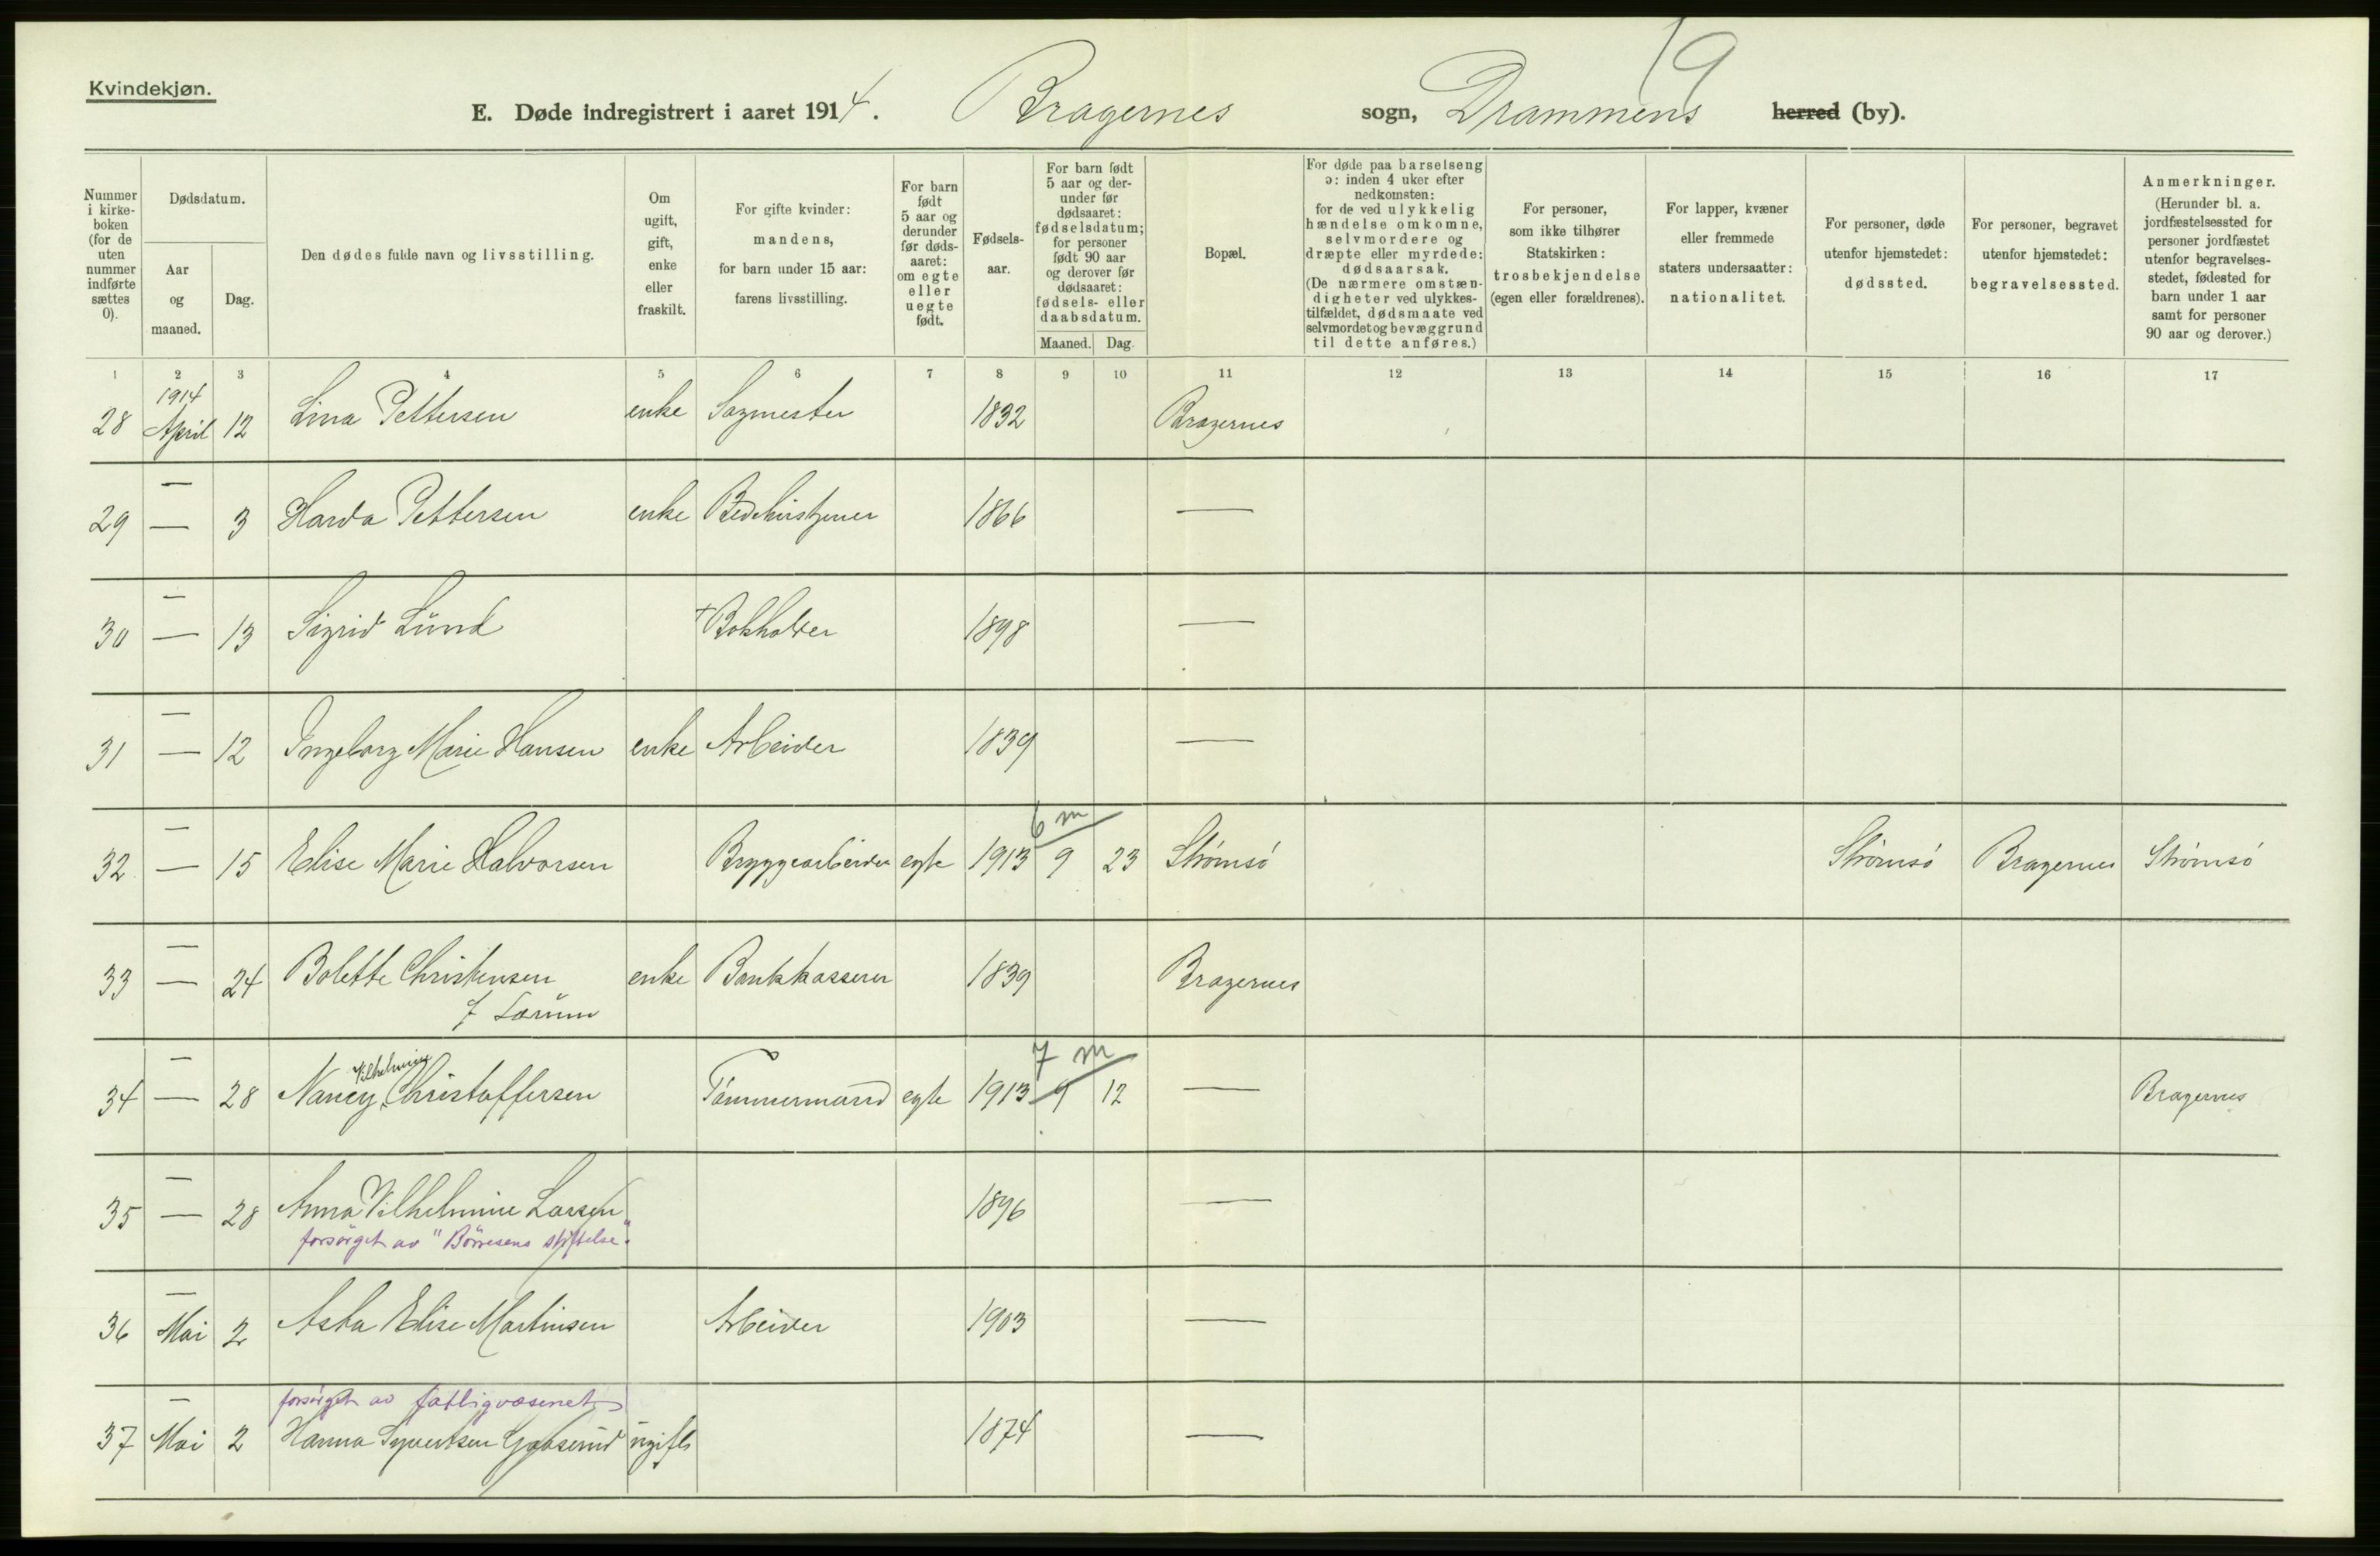 19
Kvindekjøn.
E. Døde indregistrert i aaret 1914. Bragernes sogn, Drammens herred (by).
Nummer i kirke- boken (for de uten nummer indførte sættes 0).
Dødsdatum.
Aar og maaned.
Dag.
Den dødes fulde navn og livsstilling.
Om ugift, gift, enke eller fraskilt.
For gifte kvinder: mandens, for barn under 15 aar: farens livsstilling.
For barn født 5 aar og derunder før døds- aaret: om egte eller uegte født.
Fødsels- aar.
For barn født 5 aar og der- under før dødsaaret: fødselsdatum; for personer født 90 aar og derover før dødsaaret: fødsels- eller daabsdatum.
Maaned. Dag.
Bopæl.
For døde paa barselseng ɔ: inden 4 uker efter nedkomsten: for de ved ulykkelig hændelse omkomne, selvmordere og dræpte eller myrdede: dødsaarsak. (De nærmere omstæn- digheter ved ulykkes- tilfældet, dødsmaate ved selvmordet og bevæggrund til dette anføres.)
For personer, som ikke tilhører Statskirken: trosbekjendelse (egen eller forældrenes).
For lapper, kvæner eller fremmede staters undersaatter: nationalitet.
For personer, døde utenfor hjemstedet: dødssted.
For personer, begravet utenfor hjemstedet: begravelsessted.
Anmerkninger. (Herunder bl. a. jordfæstelsessted for personer jordfæstet utenfor begravelses- stedet, fødested for barn under 1 aar samt for personer 90 aar og derover.)
1 2 3 4 5 6 7 8 9 10 11 12 13 14 15 16 17
1914
28 April 12 Lina Pettersen enke Sagmester 1832 Bragernes
—
29 — 3 Harda Pettersen enke 1866 —
—
30 — 13 Sigrid Lund Bokholder 1898 —
—
31 — 12 Ingeborg Marie Hansen enke Arbeider 1839 —
— 6 m
32 — 15 Elise Marie Halvorsen Bryggearbeider egte 1913 9 23 Strømsö Strømsö Bragernes Strømsö
—
33 — 24 Bolette Christensen enke Bankkasserer 1839 Bragernes
f Lorum
— Vilhelmine 7 m
34 — 28 Nancy Christoffersen Tömmermand egte 1913 9 12 — Bragernes
—
35 — 28 Anna Vilhelmine Larsen 1896 —
forsörget av "Börresens stiftelse".
—
36 Mai 2 Asta Elise Martinsen Arbeider 1903 —
— forsörget av fattigvæsenet
37 Mai 2 Hanna Syvertsen ugift 1874 —